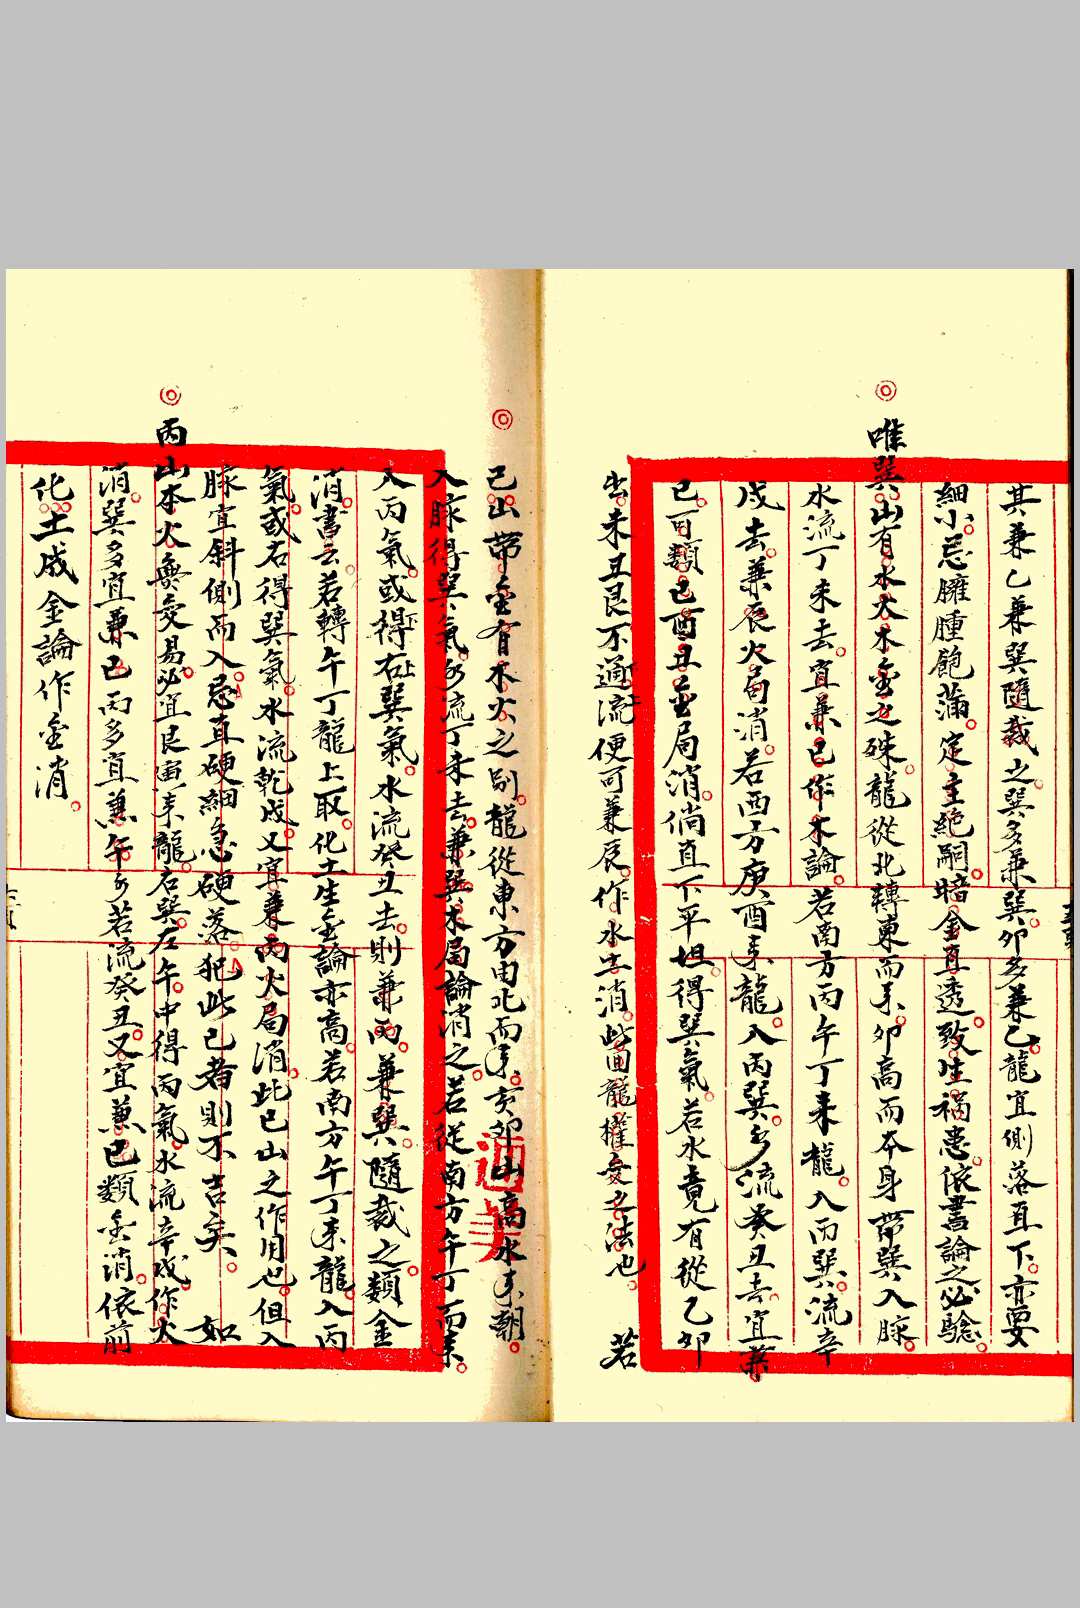 其兼乙兼巽隨裁之巽多兼巽卯多兼乙龍宜側落直下亦要
細小忌臃腫飽滿定主絕嗣暗金直透致生禍患依書論之必驗
唯巽山有水火木金之殊龍從北轉東而来卯高而本身帶巽入脉
水流丁未去宜兼巳作木論若南方丙午丁来龍入丙巽流辛
戌去兼辰火局消若西方庚酉来龍入丙巽水流癸丑去宜兼
巳一類巳酉丑金局消倘直下平坦得巽氣若水竟有從乙卯
出未丑艮不通流便可兼辰作水土消此回龍權变之法也 若
巳山帶金有木火之別龍從東方由北而来亥卯山高水来朝
入脉得巽氣水流丁未去兼巽木局論消之若從南方午丁而来
入丙氣或得右巽氣水流癸丑去則兼丙兼巽隨裁之類金
消書云若轉午丁龍上取化土生金論亦高若南方午丁来龍入丙
氣或右得巽氣水流乾戌又宜兼丙火局消此巳山之作用也但入
脉宜斜側而入忌直硬細急硬落犯此已者則不吉矣 如
丙山本火無变易必宜艮寅来龍右巽左午中得丙氣水流辛戌作火
消巽多宜兼巳丙多宜兼午水若流癸丑又宜兼巳類金消依前
化土成金論作金消